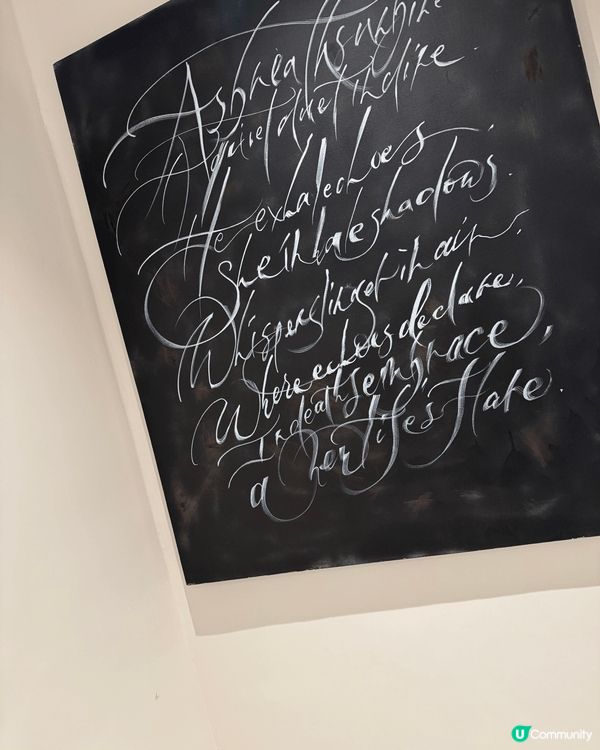 As breaths unbine
A quiet duet indire.
He exhale echoes
She inhale shadows.
Whispers linger in air,
Where echoes declare,
In death's embrace,
a
U Community